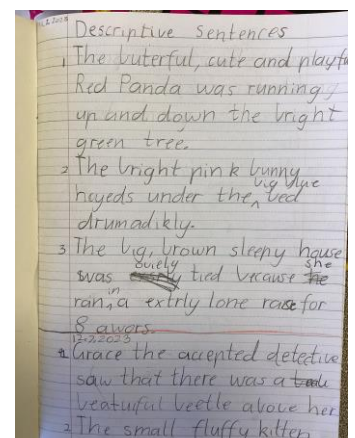 Descriptive Sentences
1 The buterful, cute and playfu
Red Panda was running
up and down the bright
green tree.
2 The bright pink bunny
big blue
hayeds under the ^ bed
drumadikly.
3 The big, brown sleepy house
quiely she
was tied because he
in
ran ^ a extrly lone race for
8 awors.
12.2.2023
1 Grace the accepted detective
saw that there was a
beatuiful beetle above her
2 The small fluffy kitten